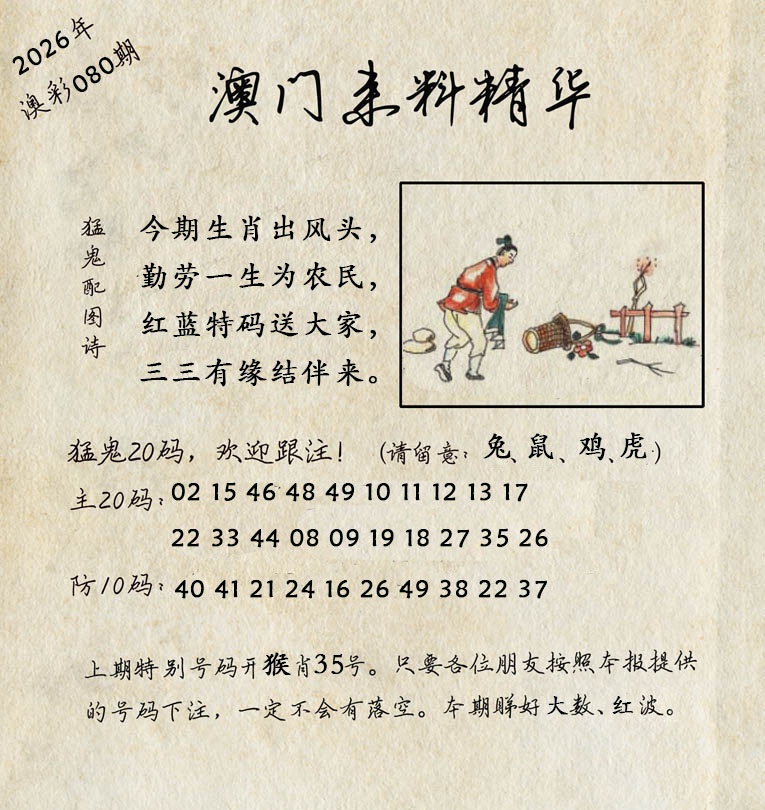 2026年
澳彩080期
澳门来料精华
猛鬼配图诗
今期生肖出风头，
勤劳一生为农民，
红蓝特码送大家，
三三有缘结伴来。
猛鬼20码，欢迎跟注！（请留意：兔、鼠、鸡、虎）
主20码：02 15 46 48 49 10 11 12 13 17
22 33 44 08 09 19 18 27 35 26
防10码：40 41 21 24 16 26 49 38 22 37
上期特别号码开猴肖35号。只要各位朋友按照本报提供
的号码下注，一定不会有落空。本期睇好大数、红波。